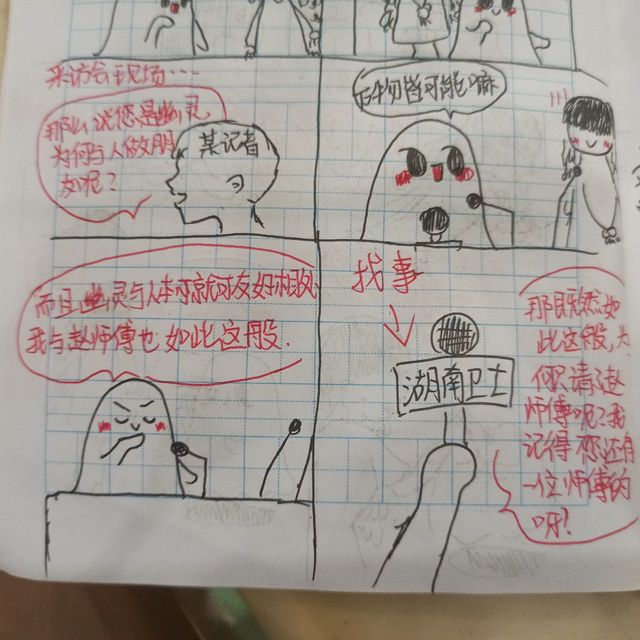 采访会现场…
那么说您是幽灵,
为何与人做朋
友呢?
某记者
万物皆可能嘛
而且幽灵与人本可就对友好相处,
我与赵师傅也如此这般.
找事
湖南卫士
那既然如
此这般,为
何只请赵
师傅呢?我
记得您还有
一位师傅的
呀?